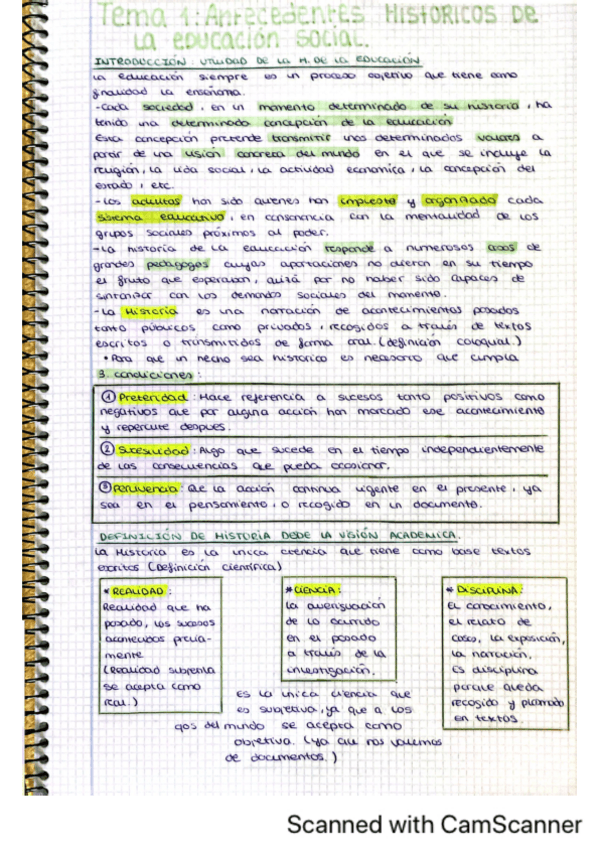 Tema 1: Antecedentes HISTÓRICOS DE
LA educación social.
INTRODUCCIÓN: UTILIDAD DE LA H. DE LA EDUCACIÓN
La educación siempre es un proceso objetivo que tiene como
finalidad la enseñanza.
-Cada sociedad, en un momento determinado de su historia, ha
tenido una determinada concepción de la educación
Esta concepción pretende transmitir unos determinados valores a
partir de una visión concreta del mundo en el que se incluye la
religión, la vida social, la actividad económica, la concepción del
estado, etc.
-Los adultos han sido quienes han impuesto y organizado cada
sistema educativo, en consonancia con la mentalidad de los
grupos sociales próximos al poder.
-La historia de la educación responde a numerosos casos de
grandes pedagogos cuyas aportaciones no dieron en su tiempo
el fruto que esperaban, quizá por no haber sido capaces de
sintonizar con las demandas sociales del momento.
-La Historia es una narración de acontecimientos pasados
tanto públicos como privados, recogidos a través de textos
escritos o transmitidos de forma oral. (definición coloquial.)
• Para que un hecho sea histórico es necesario que cumpla
3. condiciones:
① Preteridad: Hace referencia a sucesos tanto positivos como
negativos que por alguna acción han marcado ese acontecimiento
y repercute después.
② Sucesividad: Algo que sucede en el tiempo independientemente
de las consecuencias que pueda ocasionar.
③ Pervivencia: Que la acción continua vigente en el presente, ya
sea en el pensamiento, o recogido en un documento.
DEFINICIÓN DE HISTORIA DESDE LA VISIÓN ACADÉMICA.
La Historia es la única ciencia que tiene como base textos
escritos (Definición científica)
* REALIDAD:
Realidad que ha
pasado, los sucesos
acontecidos previa-
mente
(Realidad subjetiva
se acepta como
real.)
* CIENCIA:
La averiguación
de lo ocurrido
en el pasado
a través de la
investigación.
Es la única ciencia que
es subjetiva, ya que a los
ojos del mundo se acepta como
objetiva. (ya que nos valemos
de documentos.)
* DISCIPLINA:
El conocimiento,
el relato de
cosas, la exposición,
la narración,
Es disciplina
porque queda
recogido y plasmado
en textos.
Scanned with CamScanner